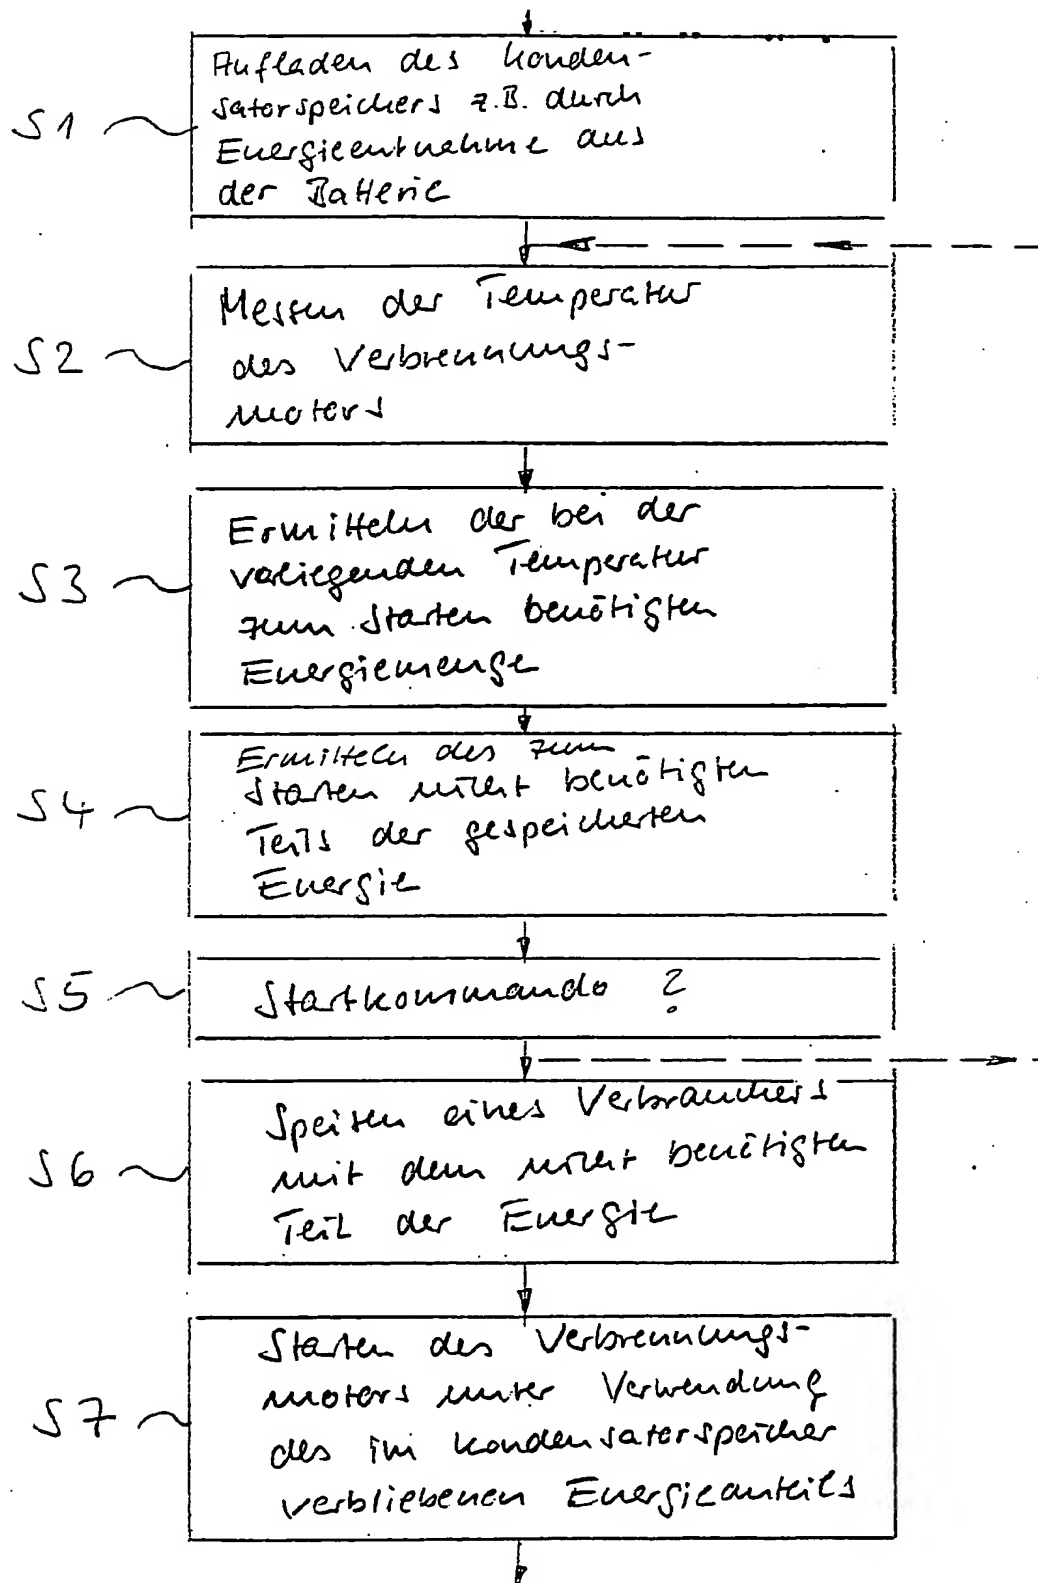 S1
Aufladen des Konden-
satorspeichers z.B. durch
Energieentnahme aus
der Batterie
S2
Messen der Temperatur
des Verbrennungs-
motors
S3
Ermitteln der bei der
vorliegenden Temperatur
zum Starten benötigten
Energiemenge
S4
Ermitteln des zum
Starten nicht benötigten
Teils der gespeicherten
Energie
S5
Startkommando ?
S6
Speisen eines Verbrauchers
mit dem nicht benötigten
Teil der Energie
S7
Starten des Verbrennungs-
motors unter Verwendung
des im Kondensatorspeicher
verbliebenen Energieanteils